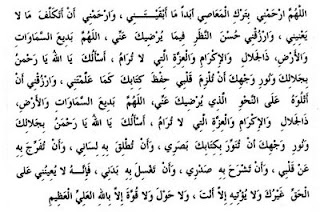 اللَّهُمَّ ارْحَمْنِي بِتَرْكِ الْمَعَاصِي أَبَدًا مَا أَبْقَيْتَنِي ، وَارْحَمْنِي أَنْ أَتَكَلَّفَ مَا لا
يَعْنِينِي ، وَارْزُقْنِي حُسْنَ النَّظَرِ فِيمَا يُرْضِيكَ عَنِّي ، اللَّهُمَّ بَدِيعَ السَّمَاوَاتِ
وَالأَرْضِ ، ذَا الْجَلالِ وَالإِكْرَامِ وَالْعِزَّةِ الَّتِي لا تُرَامُ ، أَسْأَلُكَ يَا اللَّهُ يَا رَحْمَنُ
بِجَلالِكَ وَنُورِ وَجْهِكَ أَنْ تُلْزِمَ قَلْبِي حِفْظَ كِتَابِكَ كَمَا عَلَّمْتَنِي ، وَارْزُقْنِي أَنْ
أَتْلُوَهُ عَلَى النَّحْوِ الَّذِي يُرْضِيكَ عَنِّي ، اللَّهُمَّ بَدِيعَ السَّمَاوَاتِ وَالأَرْضِ،
ذَا الْجَلالِ وَالإِكْرَامِ وَالْعِزَّةِ الَّتِي لا تُرَامُ ، أَسْأَلُكَ يَا اللَّهُ يَا رَحْمَنُ بِجَلالِكَ
وَنُورِ وَجْهِكَ أَنْ تُنَوِّرَ بِكِتَابِكَ بَصَرِي ، وَأَنْ تُطْلِقَ بِهِ لِسَانِي ، وَأَنْ تُفَرِّجَ بِهِ
عَنْ قَلْبِي ، وَأَنْ تَشْرَحَ بِهِ صَدْرِي ، وَأَنْ تَغْسِلَ بِهِ بَدَنِي ، فَإِنَّهُ لا يُعِينُنِي عَلَى
الْحَقِّ غَيْرُكَ وَلا يُؤْتِيهِ إِلاَّ أَنْتَ ، وَلا حَوْلَ وَلا قُوَّةَ إِلاَّ بِاللَّهِ الْعَلِيِّ الْعَظِيمِ